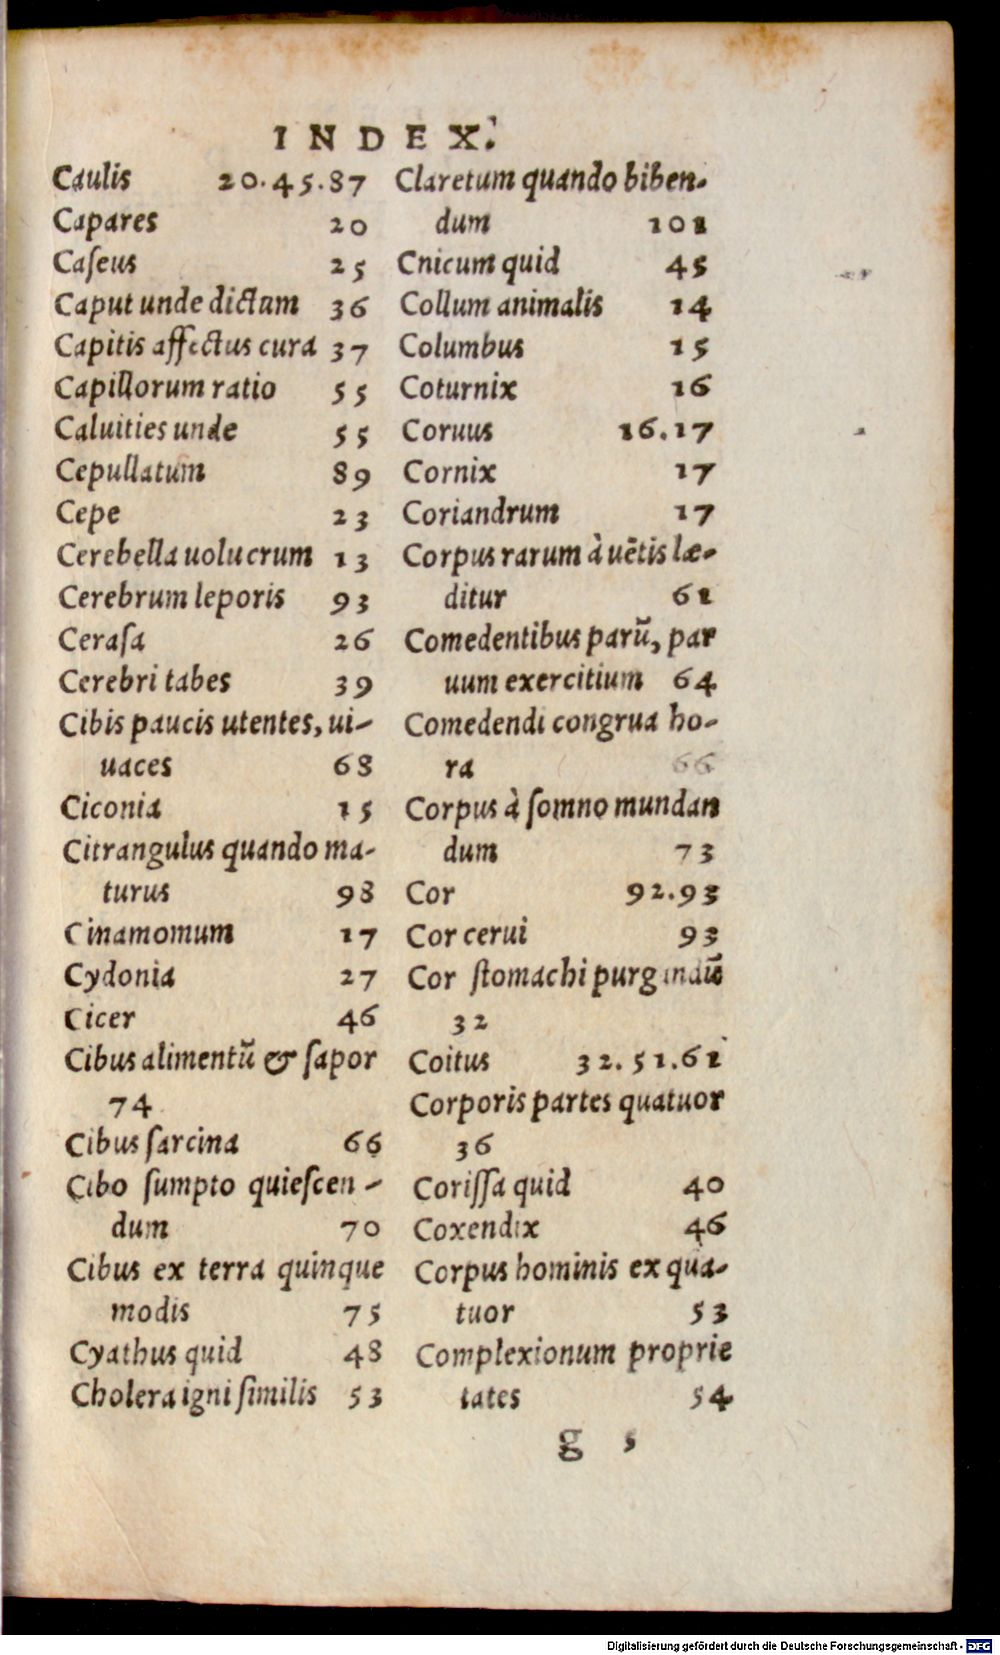 INDEX.
Caulis 20.45.87
Capares 20
Caſeus 25
Caput unde dictum 36
Capitis affectus cura 37
Capillorum ratio 55
Caluities unde 55
Cepullatum 89
Cepe 23
Cerebella uolucrum 13
Cerebrum leporis 93
Ceraſa 26
Cerebri tabes 39
Cibis paucis utentes, ui-
uaces 68
Ciconia 15
Citrangulus quando ma-
turus 98
Cinamomum 17
Cydonia 27
Cicer 46
Cibus alimentū & ſapor
74
Cibus ſarcina 66
Cibo ſumpto quieſcen-
dum 70
Cibus ex terra quinque
modis 75
Cyathus quid 48
Cholera igni ſimilis 53
Claretum quando biben-
dum 101
Cnicum quid 45
Collum animalis 14
Columbus 15
Coturnix 16
Coruus 16.17
Cornix 17
Coriandrum 17
Corpus rarum à uētis læ-
ditur 61
Comedentibus parū, par
uum exercitium 64
Comedendi congrua ho-
ra 66
Corpus à ſomno mundan
dum 73
Cor 92.93
Cor cerui 93
Cor ſtomachi purgandū
32
Coitus 32.51.61
Corporis partes quatuor
36
Coriſſa quid 40
Coxendix 46
Corpus hominis ex qua-
tuor 53
Complexionum proprie
tates 54
g 5
Digitalisierung gefördert durch die Deutsche Forschungsgemeinschaft - DFG